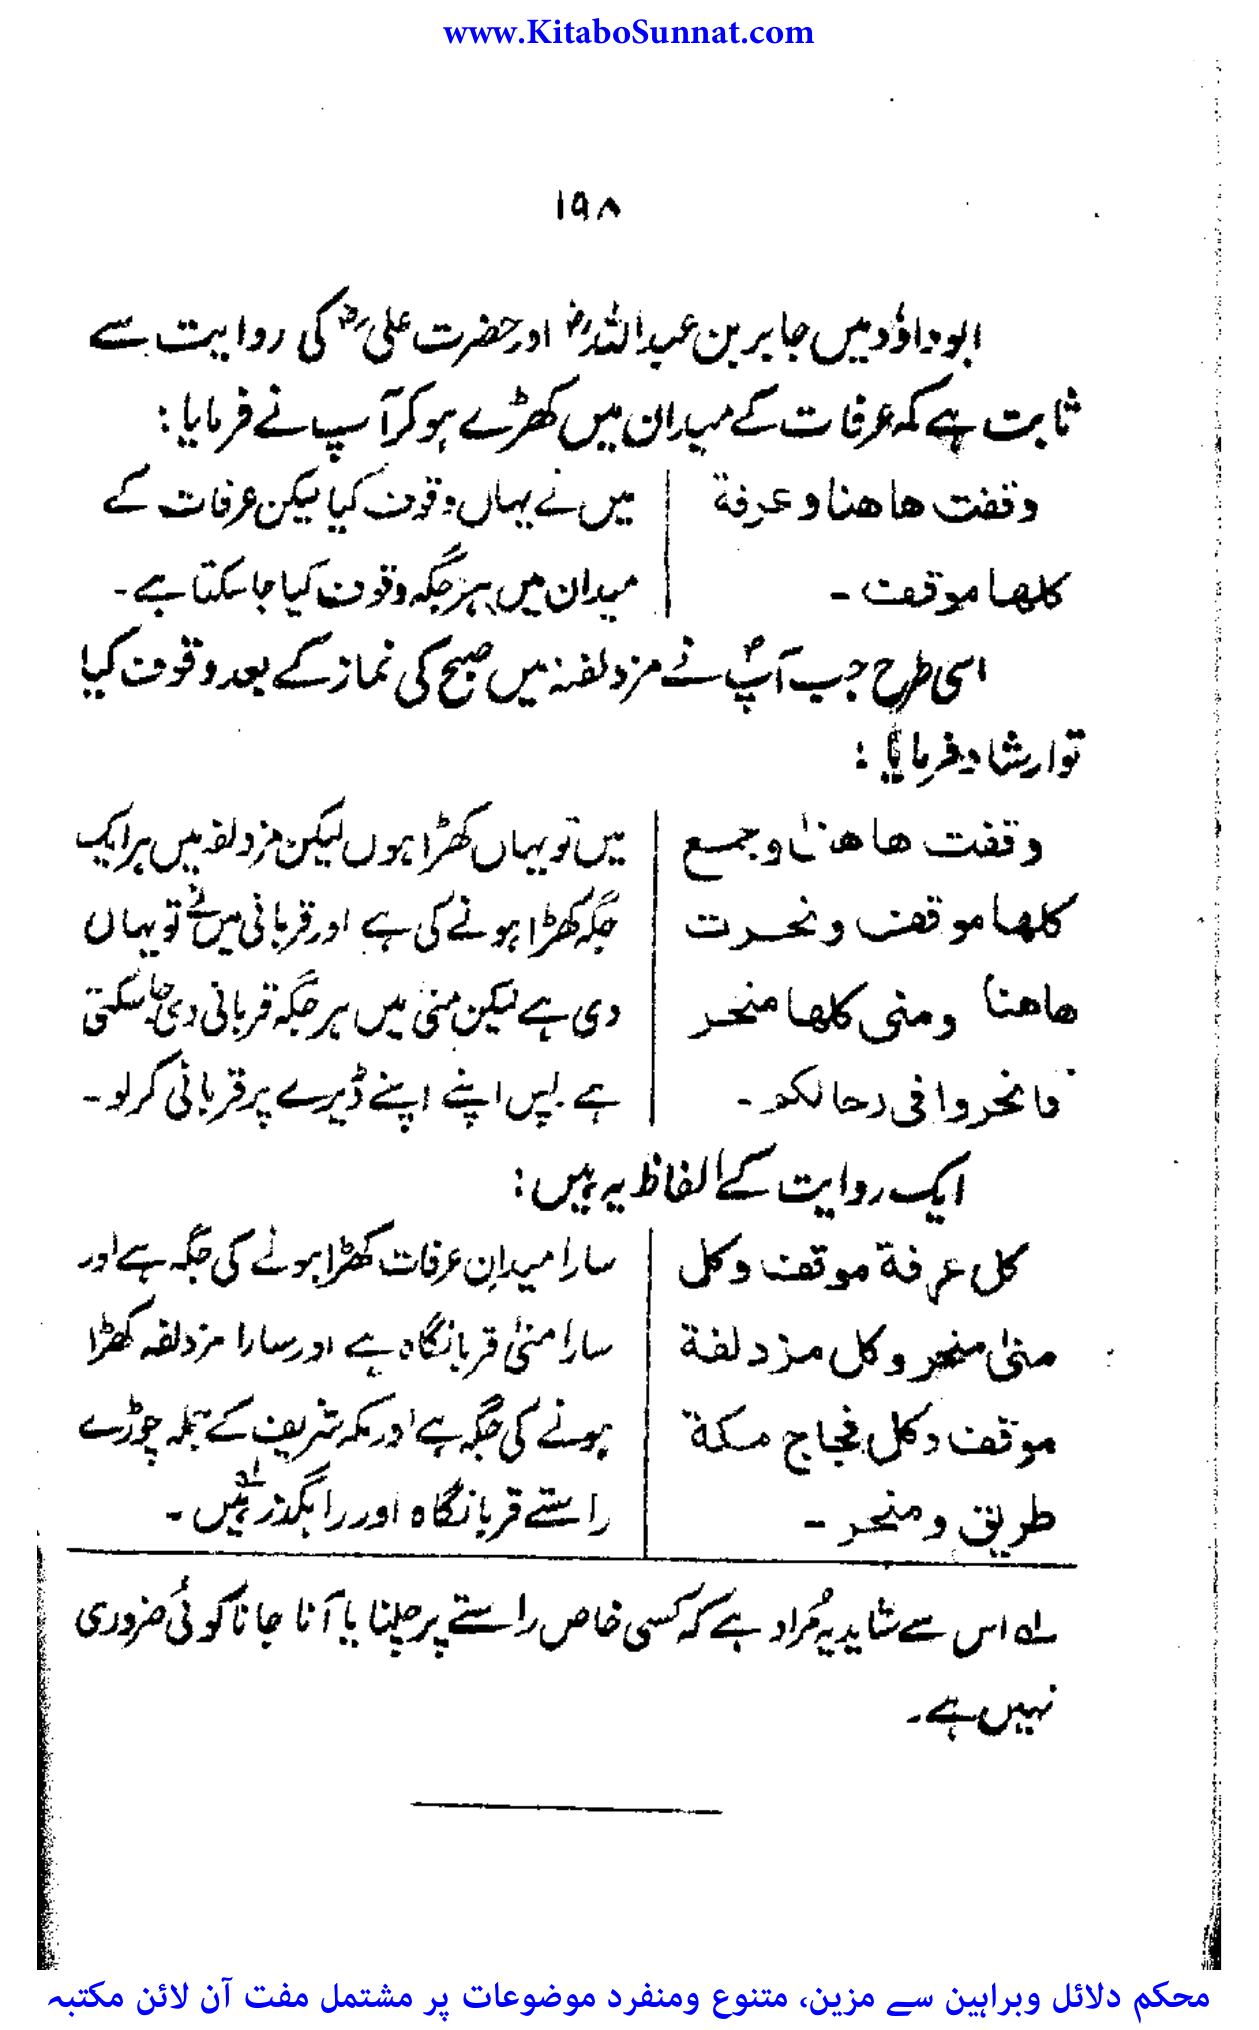 www.KitaboSunnat.com
۱۹۸
ابوداؤد میں جابر بن عبداللہؓ اور حضرت علیؓ کی روایت سے
ثابت ہے کہ عرفات کے میدان میں کھڑے ہو کر آپ نے فرمایا:
وقفت هاهنا وعرفة
كلها موقف -
میں نے یہاں وقوف کیا لیکن عرفات کے
میدان میں ہر جگہ وقوف کیا جا سکتا ہے۔
اسی طرح جب آپؐ نے مزدلفہ میں صبح کی نماز کے بعد وقوف کیا
تو ارشاد فرمایا:
وقفت هاهنا وجمع
كلها موقف ونحرت
هاهنا ومنى كلها منحر
فانحروا فى رحالكم -
میں تو یہاں کھڑا ہوں لیکن مزدلفہ میں ہر ایک
جگہ کھڑا ہونے کی ہے اور قربانی میں نے تو یہاں
دی ہے لیکن منیٰ میں ہر جگہ قربانی دی جا سکتی
ہے پس اپنے اپنے ڈیرے پر قربانی کر لو۔
ایک روایت کے الفاظ یہ ہیں:
كل عرفة موقف وكل
منىٰ منحر وكل مزدلفة
موقف وكل فجاج مكة
طريق ومنحر -
سارا میدانِ عرفات کھڑا ہونے کی جگہ ہے اور
سارا منیٰ قربانگاہ ہے اور سارا مزدلفہ کھڑا
ہونے کی جگہ ہے اور مکہ شریف کے جملہ چوڑے
راستے قربانگاہ اور راہگذر ہیں۔ لہ
لہ اس سے شاید یہ مُراد ہے کہ کسی خاص راستے پر چلنا یا آنا جانا کوئی ضروری
نہیں ہے۔
محکم دلائل وبراہین سے مزین، متنوع ومنفرد موضوعات پر مشتمل مفت آن لائن مکتبہ